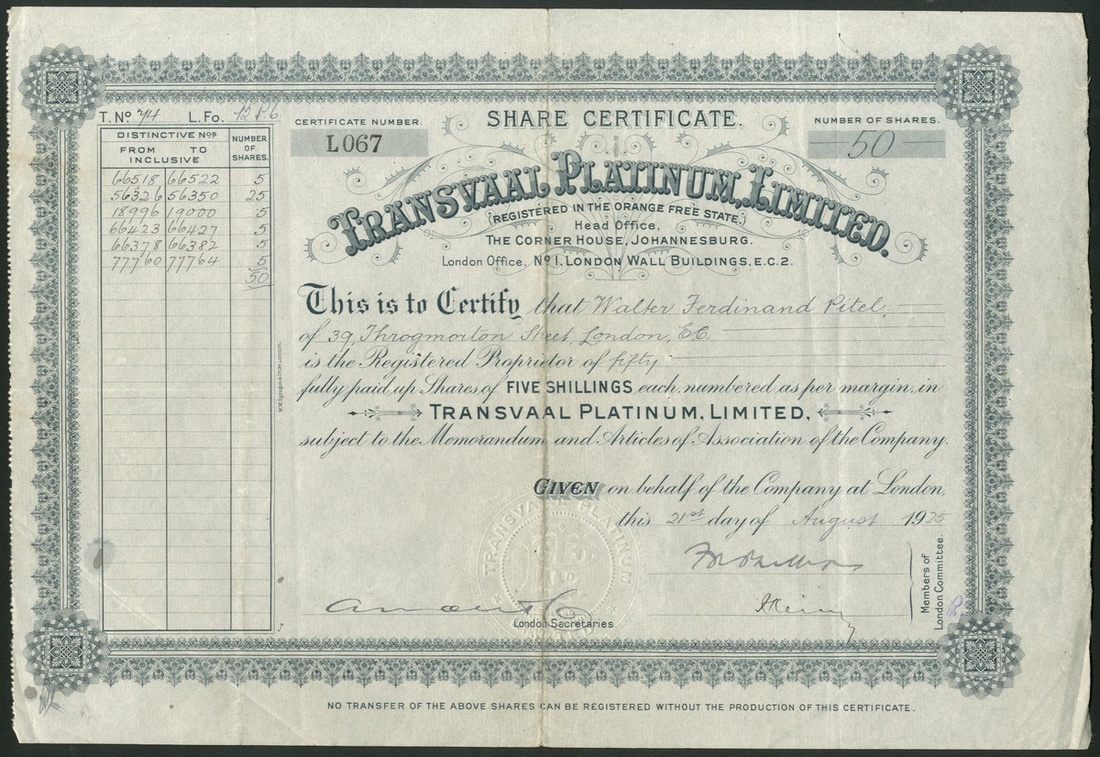 T. No 74 L. Fo. 12 P. 6
DISTINCTIVE Nos
NUMBER OF SHARES.
FROM TO
INCLUSIVE
66518 66522 5
56326 56350 25
18996 19000 5
66423 66427 5
66378 66382 5
77760 77764 5
50
CERTIFICATE NUMBER.
L067
SHARE CERTIFICATE.
NUMBER OF SHARES.
50
TRANSVAAL PLATINUM, LIMITED.
(REGISTERED IN THE ORANGE FREE STATE.)
Head Office,
THE CORNER HOUSE, JOHANNESBURG.
London Office, No 1, LONDON WALL BUILDINGS, E.C.2.
This is to Certify that Walter Ferdinand Pitel,
of 39, Throgmorton Street, London, E.C.
is the Registered Proprietor of fifty
fully paid up Shares of FIVE SHILLINGS each, numbered as per margin, in
TRANSVAAL PLATINUM, LIMITED,
subject to the Memorandum and Articles of Association of the Company.
GIVEN on behalf of the Company at London,
this 21st day of August 1925
TRANSVAAL PLATINUM
Members of
London Committee.
London Secretaries
NO TRANSFER OF THE ABOVE SHARES CAN BE REGISTERED WITHOUT THE PRODUCTION OF THIS CERTIFICATE.